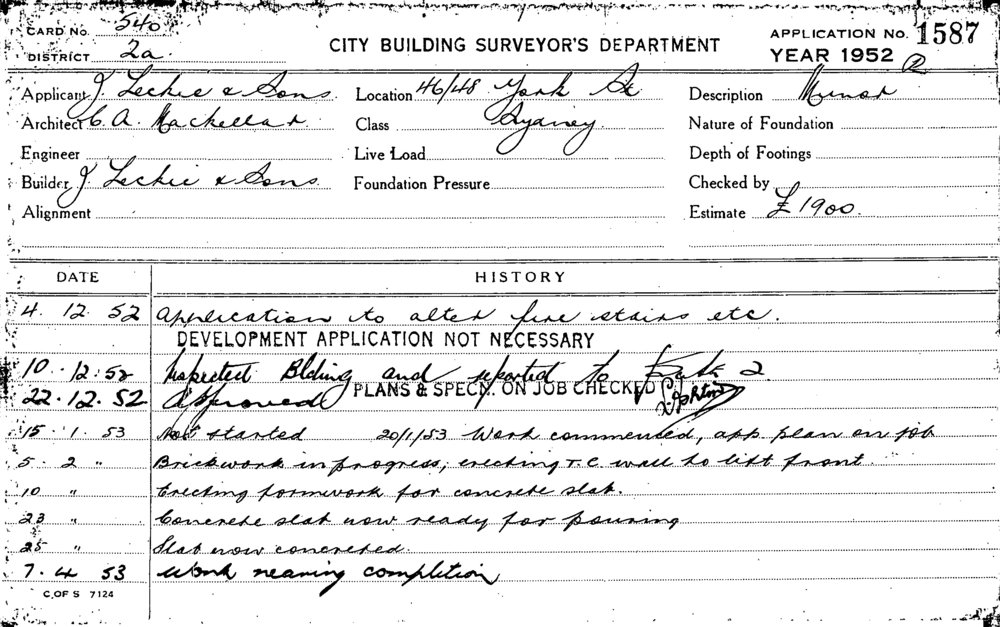 CARD No. 540
DISTRICT 2a
CITY BUILDING SURVEYOR'S DEPARTMENT
APPLICATION No. 1587
YEAR 1952 R
Applicant J. Leckie & Sons Location 46/48 York St Description Minor
Architect C. A. Mackellar Class Sydney Nature of Foundation
Engineer Live Load Depth of Footings
Builder J. Leckie & Sons Foundation Pressure Checked by
Alignment Estimate £1900.
DATE HISTORY
4. 12. 52 Application to alter fire stairs etc.
DEVELOPMENT APPLICATION NOT NECESSARY
10. 12. 52 Inspected Blding and reported to 2
PLANS & SPECN. ON JOB CHECKED
22. 12. 52 Approved
15. 1. 53 Not started 20/1/53 Work commenced, app. plan on job
5. 2 " Brickwork in progress, erecting T.C. wall to lift front.
10 " Erecting formwork for concrete slab.
23 " Concrete slab now ready for pouring
25 " Slab now concreted.
7. 4 53 Work nearing completion
C. OF S 7124